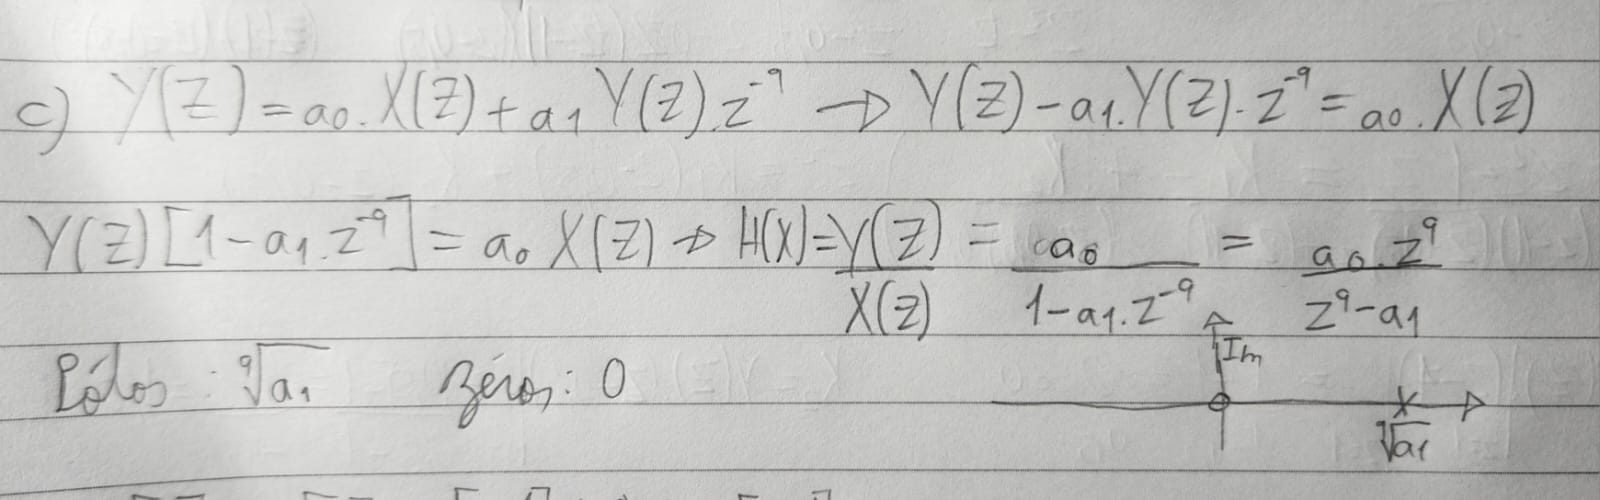 c) Y(Z) = a0.X(Z) + a1 Y(Z).z⁻⁹ → Y(Z) - a1.Y(Z).z⁻⁹ = a0.X(z)
Y(Z)[1 - a1.z⁻⁹] = a0 X(Z) → H(X) = Y(Z)/X(Z) = a0/(1 - a1.z⁻⁹) = a0.z⁹/(z⁹ - a1)
Im
Pólos: ⁹√a1 zéros: 0
⁹√a1